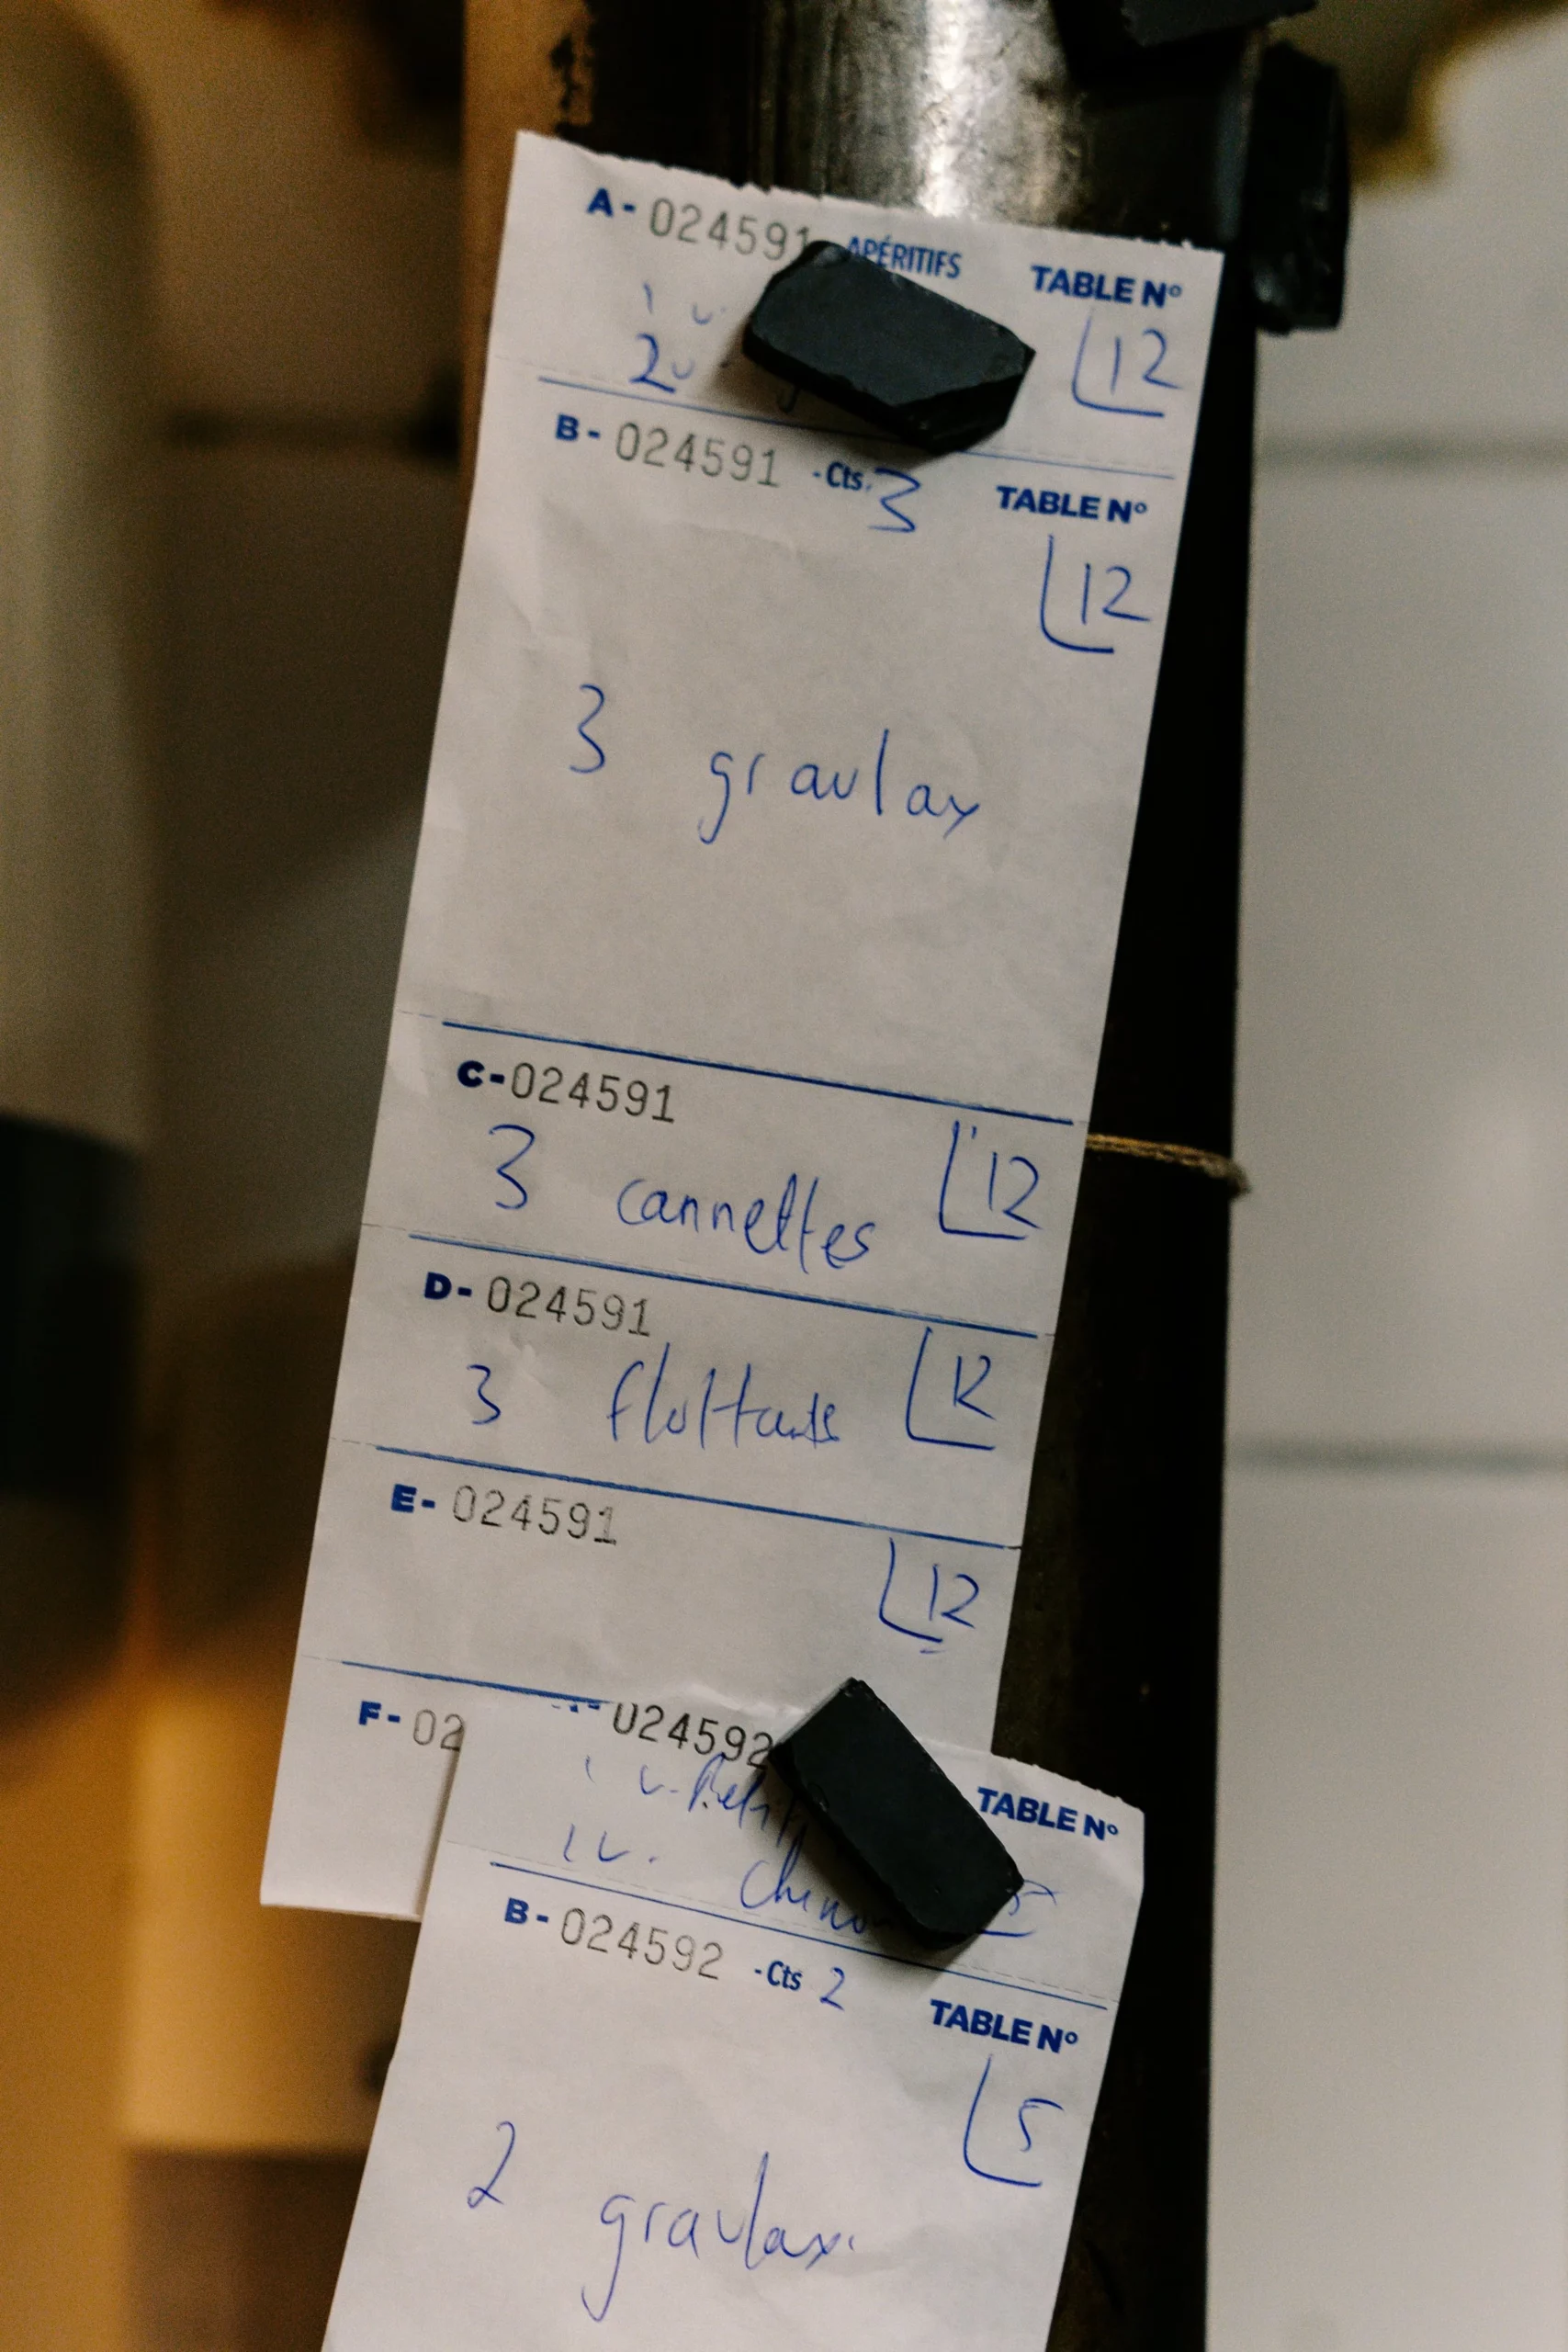 A- 024591 APÉRITIFS TABLE Nº
1 v.
2 v
12
B- 024591 -Cts. 3 TABLE Nº
12
3 gravlax
C- 024591
12
3 cannettes
D- 024591
12
3 flottants
E- 024591
12
F- 02
024592 TABLE Nº
1 v.
1 v. Chinon
5
B- 024592 -Cts 2 TABLE Nº
5
2 gravlax.